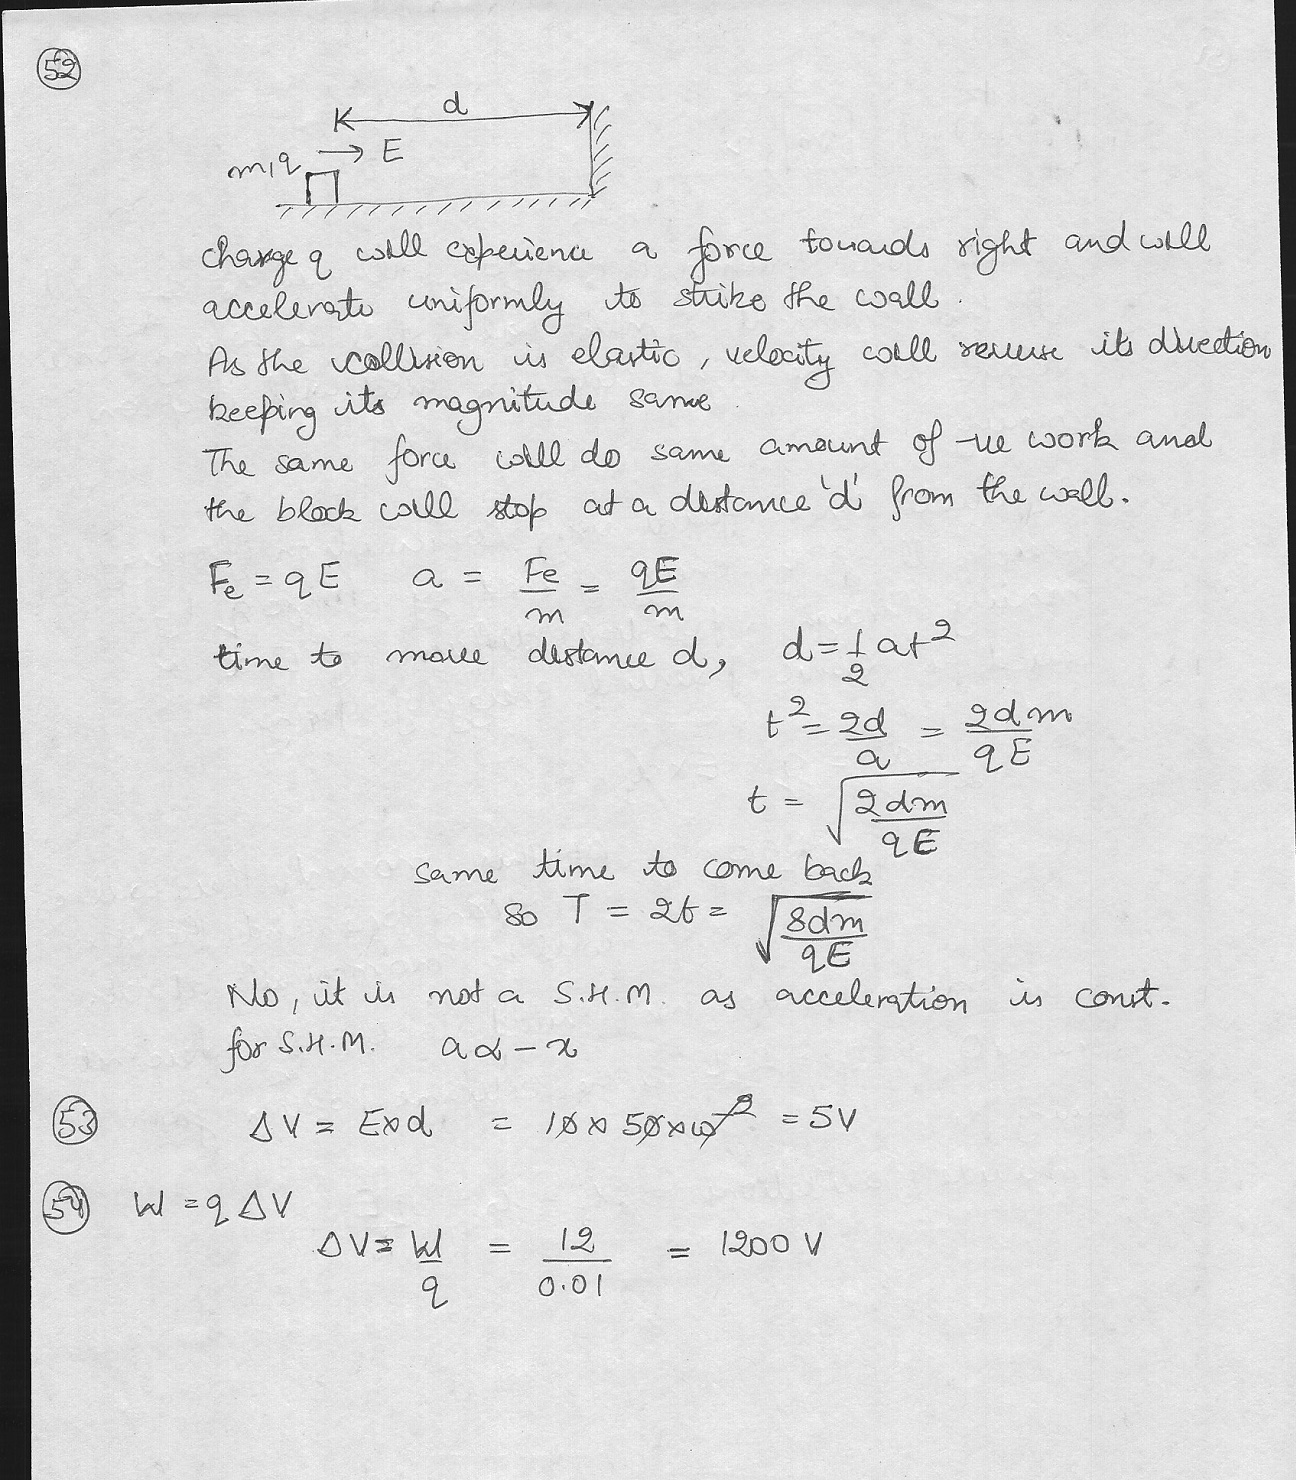 52
d
m, q → E
charge q will experience a force towards right and will
accelerate uniformly to strike the wall.
As the collision is elastic, velocity will reverse its direction
keeping its magnitude same.
The same force will do same amount of -ve work and
the block will stop at a distance 'd' from the wall.
Fe = qE a = Fe/m = qE/m
time to move distance d, d = 1/2 at²
t² = 2d/a = 2dm/qE
t = √(2dm/qE)
same time to come back
so T = 2t = √(8dm/qE)
No, it is not a S.H.M. as acceleration is const.
for S.H.M. a α - x
53 ΔV = E×d = 10 × 50 × 10⁻² = 5V
54 W = qΔV
ΔV = W/q = 12/0.01 = 1200 V